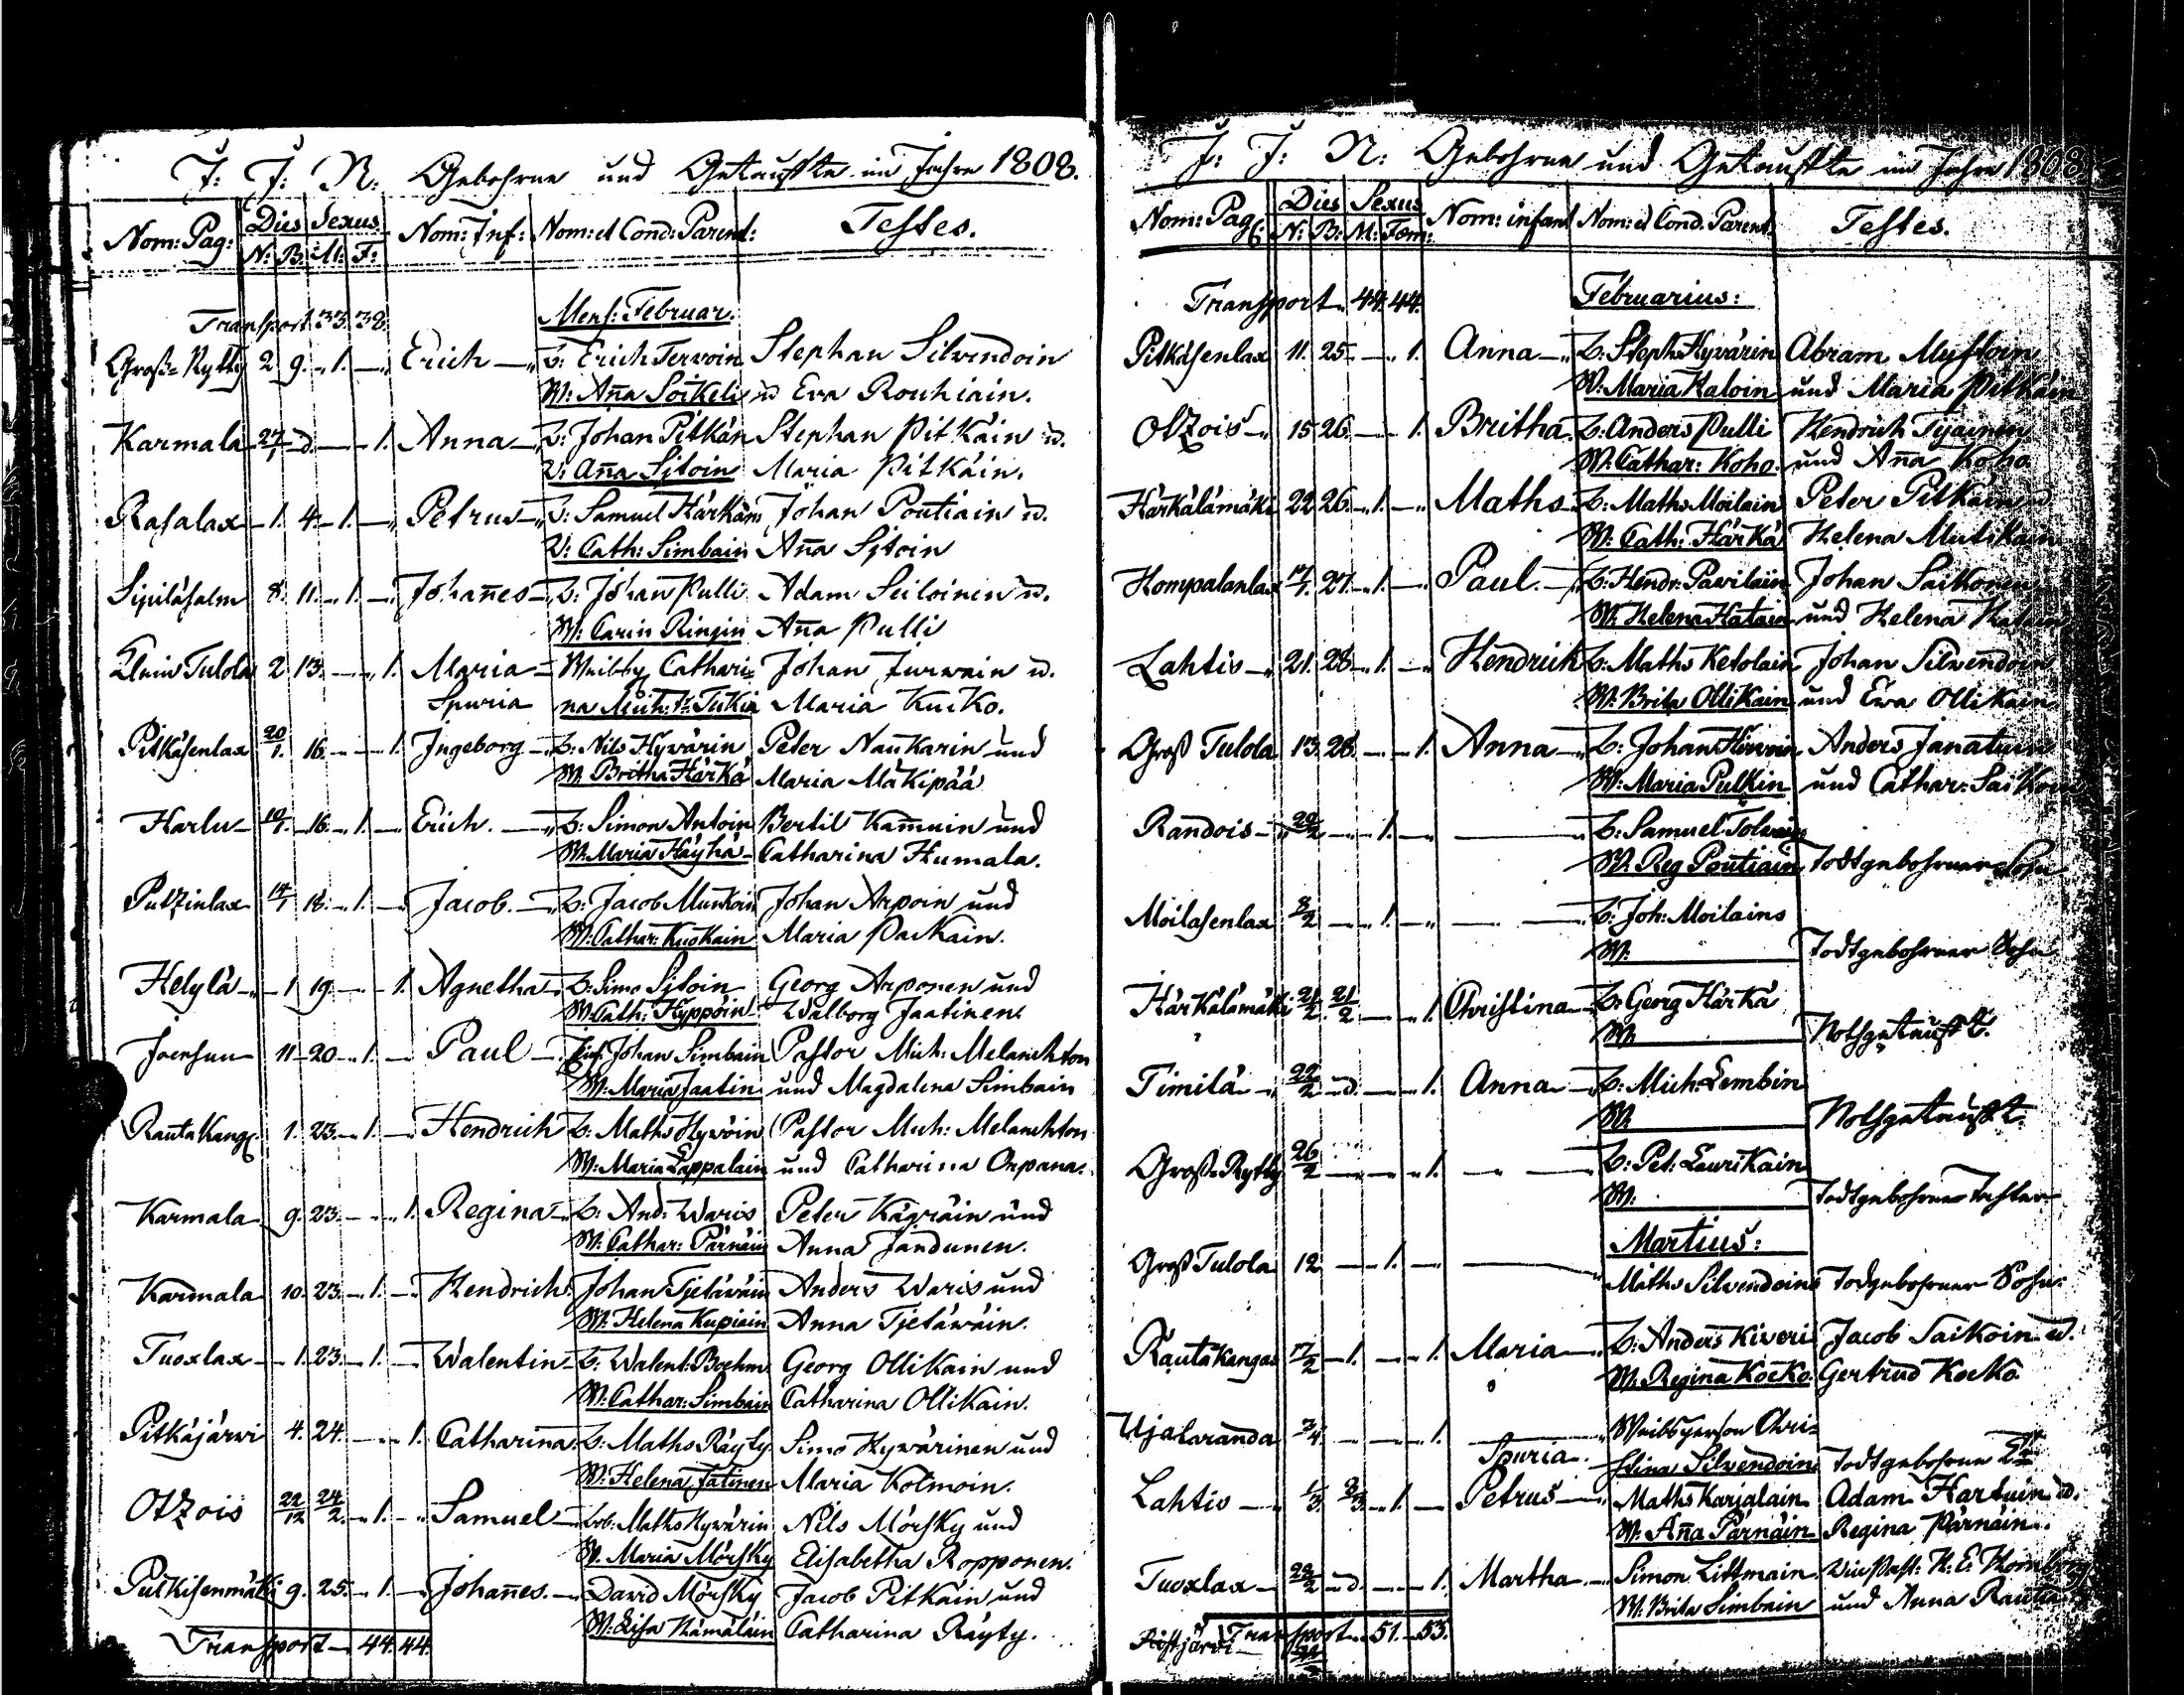 J: J: N: Gebohrne und Getaufte im Jahre 1808.
Nom: Pag: Dies Sexus Nom: Inf: Nom: et Cond: Parent: Testes.
N: B: M: F:
Transport 33. 38. Mens: Februar.
Groß=Rytty 2 9. 1. Erich B: Erich Tervoin Stephan Silvendoin
W: Aña Soikeli u Eva Rouhiain.
Karmala 27/1 d. 1. Anna B: Johan Pitkän Stephan Pitkäin u.
W: Aña Sjtoin Maria Pitkäin.
Rasalax 1. 4. 1. Petrus B: Samuel Härkäin Johan Poutiain u.
W: Cath: Simbain Aña Sjtoin
Sipiläsalm 8. 11. 1. Johañes B: Johan Pulli Adam Seiloinen u.
W: Carin Ringin Aña Pulli
Klein Tulola 2 13. 1. Maria Weibsp Cathari= Johan Jurwain u.
Spuria na Mich: Tr: Tukia Maria Kucko.
Pitkäsenlax 20/1. 16. 1. Ingeborg B: Nils Hyvärin Peter Naukarin und
W: Britha Härkä Maria Mäkipää
Harlu 10/1. 16. 1. Erich. B: Simon Antoin Bertil Kam̃uin und
W: Maria Häyhä Catharina Humala.
Putzinlax 14/1 18. 1. Jacob. B: Jacob Munkoin Johan Arpoin und
W: Cathar: Kuokain Maria Packain.
Helylä 1 19. 1. Agnetha B: Simo Sjtoin Georg Arponen und
W: Cath: Hyppöin Walborg Jaatinen
Joensuu 11 20 1. Paul Johan Simbain Pastor Mich: Melanchton
W: Maria Jaatin und Magdalena Simbain
Rauta Kang. 1. 23. 1. Hendrich B: Maths Hyvöin Pastor Mich: Melanchton
W: Maria Lappalain und Catharina Orpana.
Karmala 9. 23. 1. Regina B: And: Waris Peter Kägräin und
W: Cathar: Pärnäin Anna Jandunen.
Karmala 10. 23. 1. Hendrich Johan Tjetäväin Anders Waris und
W: Helena Kupiain Anna Tjetäwäin.
Tuoxlax 1. 23. 1. Walentin B: Walent: Boehm Georg Ollikain und
W: Cathar: Simbain Catharina Ollikain.
Pitkäjärwi 4. 24. 1. Catharina B: Maths Räyty Simo Hyvärinen und
W: Helena Jatinen Maria Kolmoin.
Otzois 22/12 24/2. 1. Samuel Lob: Maths Hyvärin Nils Mörsky und
W. Maria Mörsky Elisabetha Ropponen.
Putkisenmäki 9. 25. 1. Johañes. David Mörsky Jacob Pitkäin und
W: Lisa Hämäläin Catharina Räyty.
Transport 44. 44.
J: J: N: Gebohrne und Getaufte im Jahre 1808.
Nom: Pag: Dies Sexus Nom: infant Nom: et Cond. Parent. Testes.
N: B: M: Fœm:
Transport 44. 44. Februarius:
Pitkäsenlax 11. 25. 1. Anna B: Steph: Hyvärin Abram Mustoin
W: Maria Kaloin und Maria Pitkäin
Otzois 15 26. 1. Britha B: Anders Pulli Hendrich Tijainen
W: Cathar: Koho. und Aña Koho
Härkälämäki 22 26. 1. Maths B: Maths Moilain Peter Pitkäin u
W: Cath: Härkä Helena Mutikain
Kompalanlax 17/1. 27. 1. Paul. B: Hendr: Pawilain Johan Saikonen
W: Helena Hatain und Helena Hatain
Lahtis 21. 28. 1. Hendrich B: Maths Ketolain Johan Silvendoin
W: Brita Ollikain und Ewa Ollikain
Groß Tulola 13. 28. 1. Anna B: Johan Hirvoin Anders Janatuin
W: Maria Pulkin und Cathar: Saikoin
Randois 22/2 1. B: Samuel Tolvain
W: Reg Poutiain Todtgebohrner Sohn
Moilasenlax 8/2 1. B: Joh: Moilains
W: Todtgebohrner Sohn
Härkälämäki 21/2. 21/2 1. Christina B: Georg Härkä
W: Nothgetauft.
Timilä 22/2 d. 1. Anna B: Mich: Lembin
W: Nothgetauft.
Groß=Rytty 26/2 1. B: Pet: Laurikain
W: Todtgebohrne Tochter
Martius:
Groß Tulola 12 1. Maths Silvendoins Todgebohrner Sohn.
Rautakangas 17/2 1. 1. Maria B: Anders Kiveri Jacob Saikoin u.
W. Regina Kocko. Gertrud Kocko.
Ujalaranda 3/4. 1. Weibsperson Chri=
Spuria. stina Silvendoin Todtgebohrne
Lahtis 1/3. 8/3. 1. Petrus Maths Karjalain Adam Hartuin u.
W: Aña Pärnäin Regina Pärnäin.
Tuoxlax 22/2 d. 1. Martha. Simon Littmain. Vice Past: H: E: Hornborg
W: Brita Simbain und Anna Rautia
Transport 51. 53.
Ristjärvi